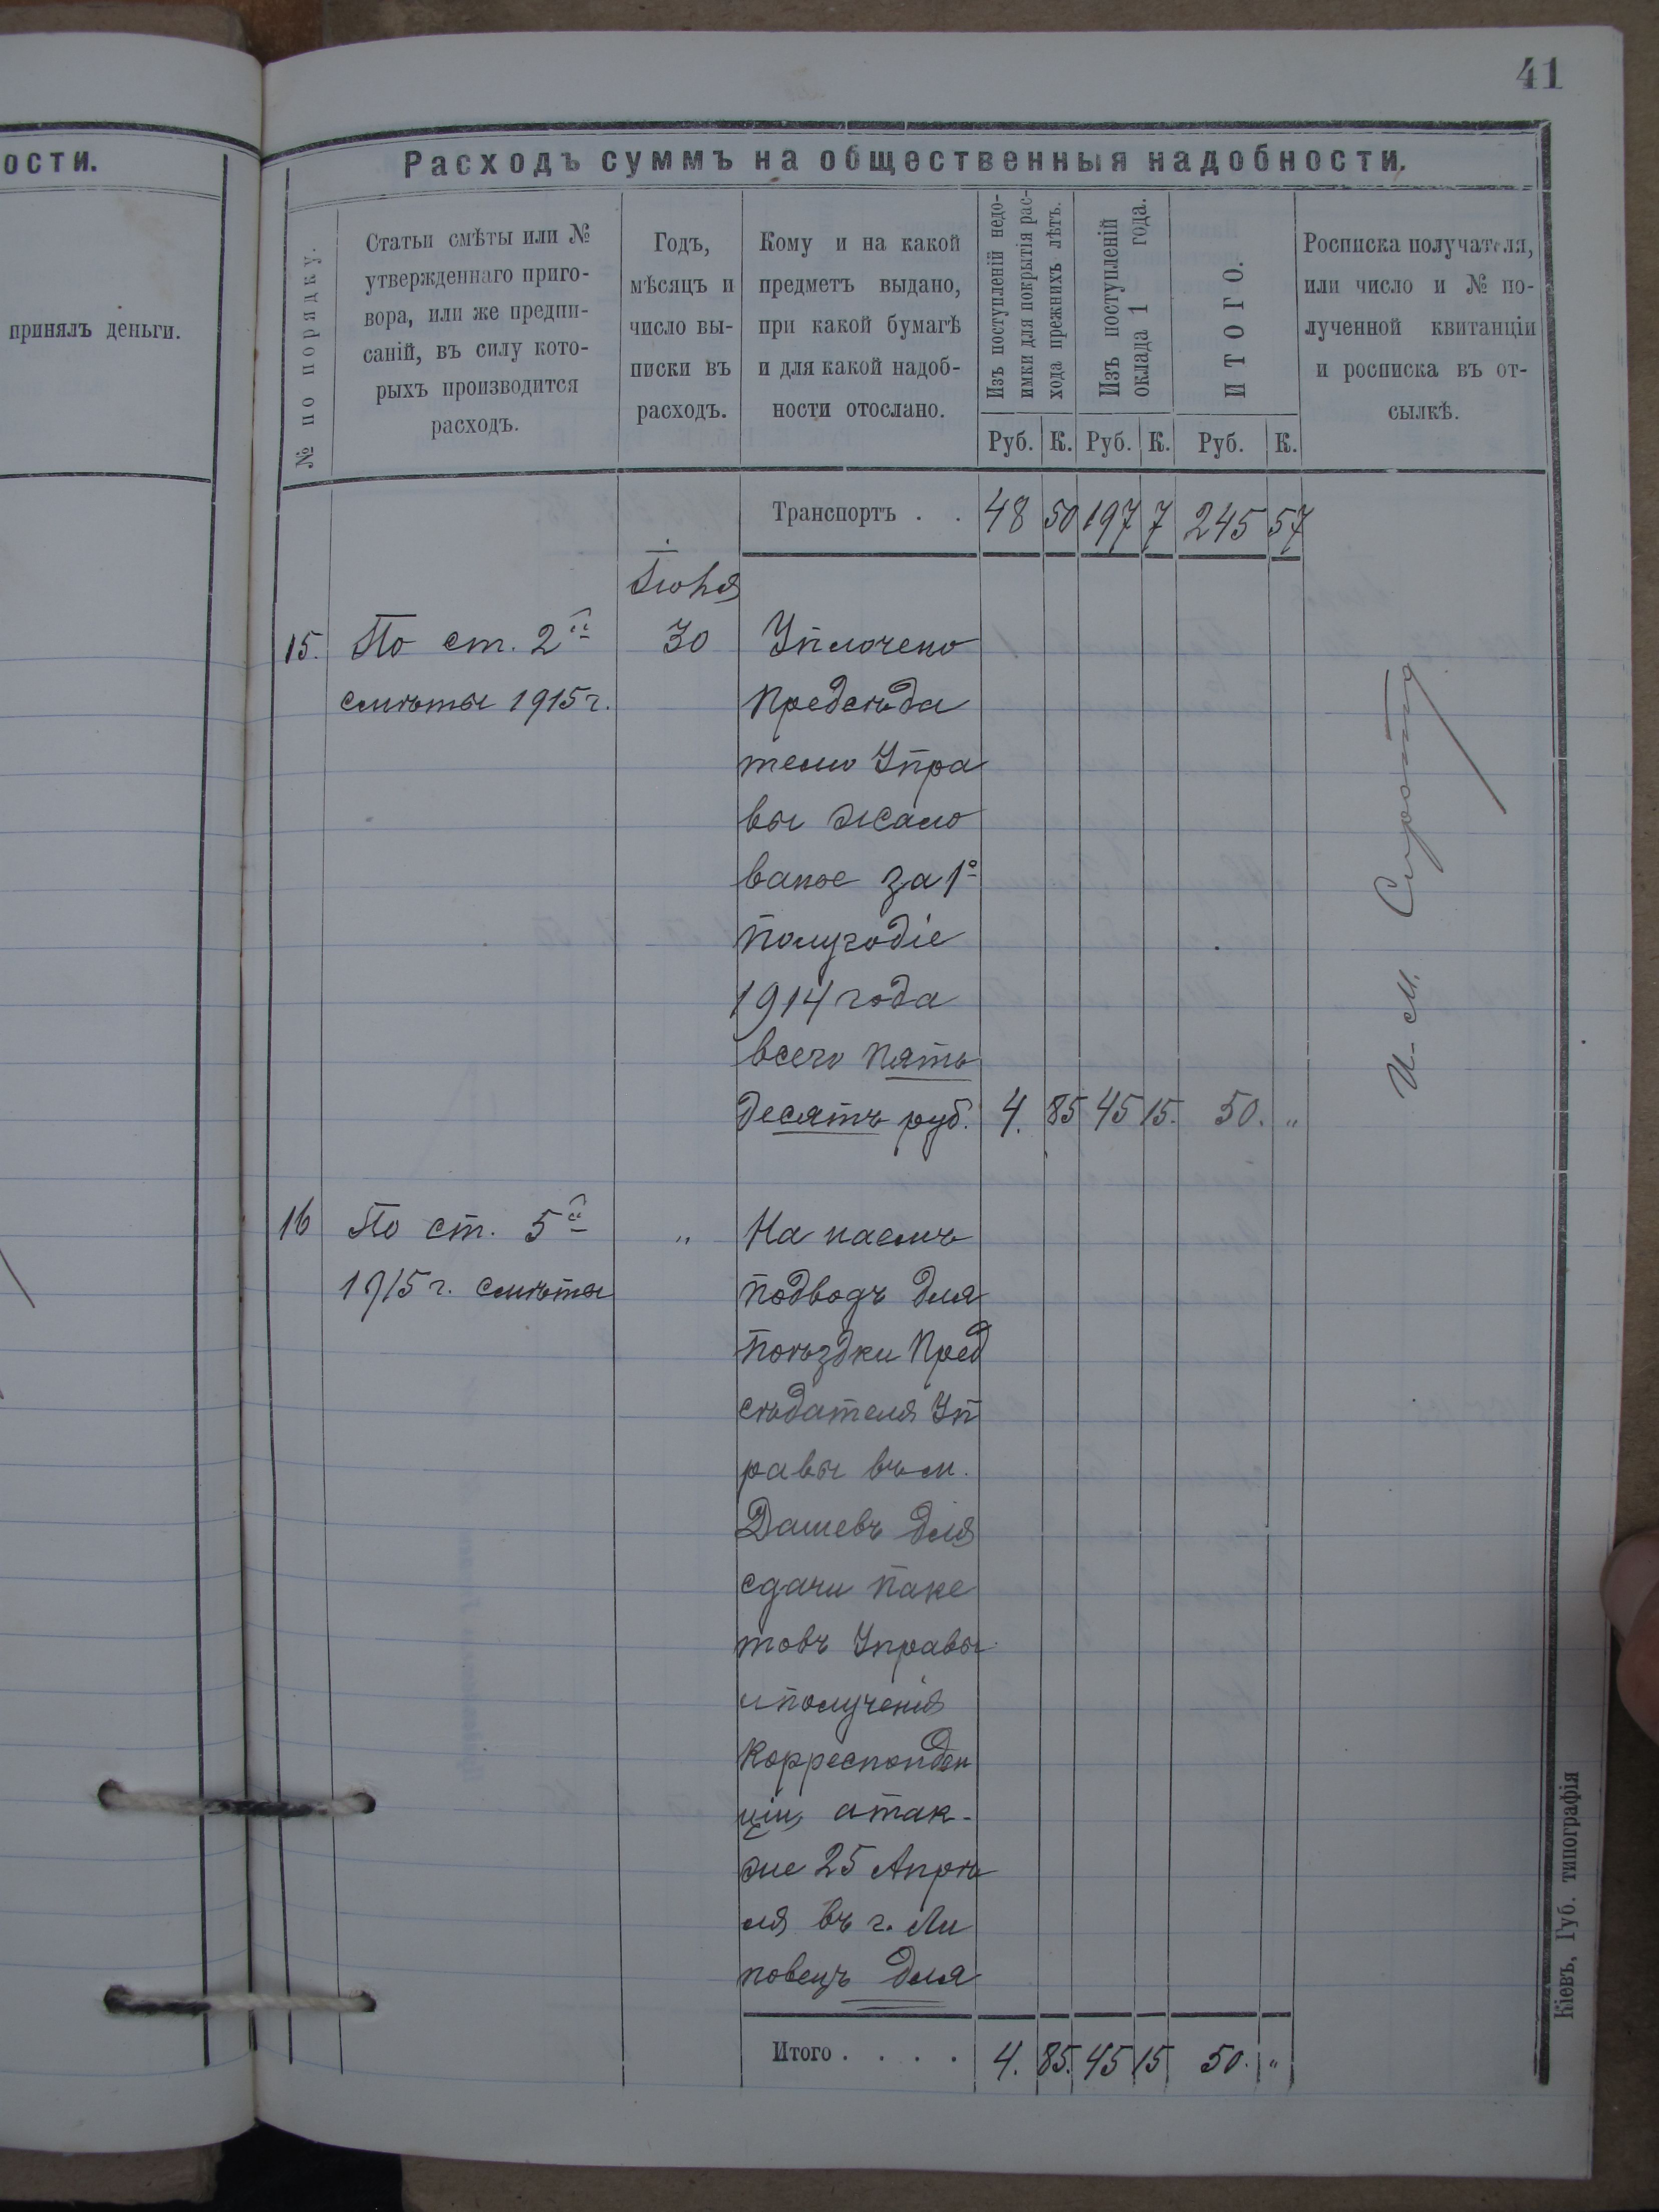 41
ости.
принялъ деньги.
Расходъ суммъ на общественныя надобности.
№ по порядку.
Статьи смѣты или №
утвержденнаго приго-
вора, или же предпи-
саній, въ силу кото-
рыхъ производится
расходъ.
Годъ,
мѣсяцъ и
число вы-
писки въ
расходъ.
Кому и на какой
предметъ выдано,
при какой бумагѣ
и для какой надоб-
ности отослано.
Изъ поступленій недо-
имки для покрытія рас-
хода прежнихъ лѣтъ.
Изъ поступленій
оклада 1 года.
ИТОГО.
Росписка получателя,
или число и № по-
лученной квитанціи
и росписка въ от-
сылкѣ.
Руб. К. Руб. К. Руб. К.
Транспортъ . . 48 50 197 7 245 57
Іюня
15. По ст. 2й 30 Уплочено
смѣты 1915 г. Предсѣда
телю Упра
вы жало
ванье за 1о
полугодіе
1914 года
всего пять
десятъ руб. 4. 85 45 15. 50. "
И. М. Сирота
16 По ст. 5й " На наемъ
1915 г. смѣты подводъ для
поѣздки Пред
сѣдателя Уп
равы въ м.
Дашевъ для
сдачи паке
товъ Управы
и полученія
Корреспонден
ціи, а так-
же 25 Апрѣ
ля въ г. Ли
повецъ для
Итого . . . . 4. 85. 45 15 50. "
Кіевъ, Губ. типографія